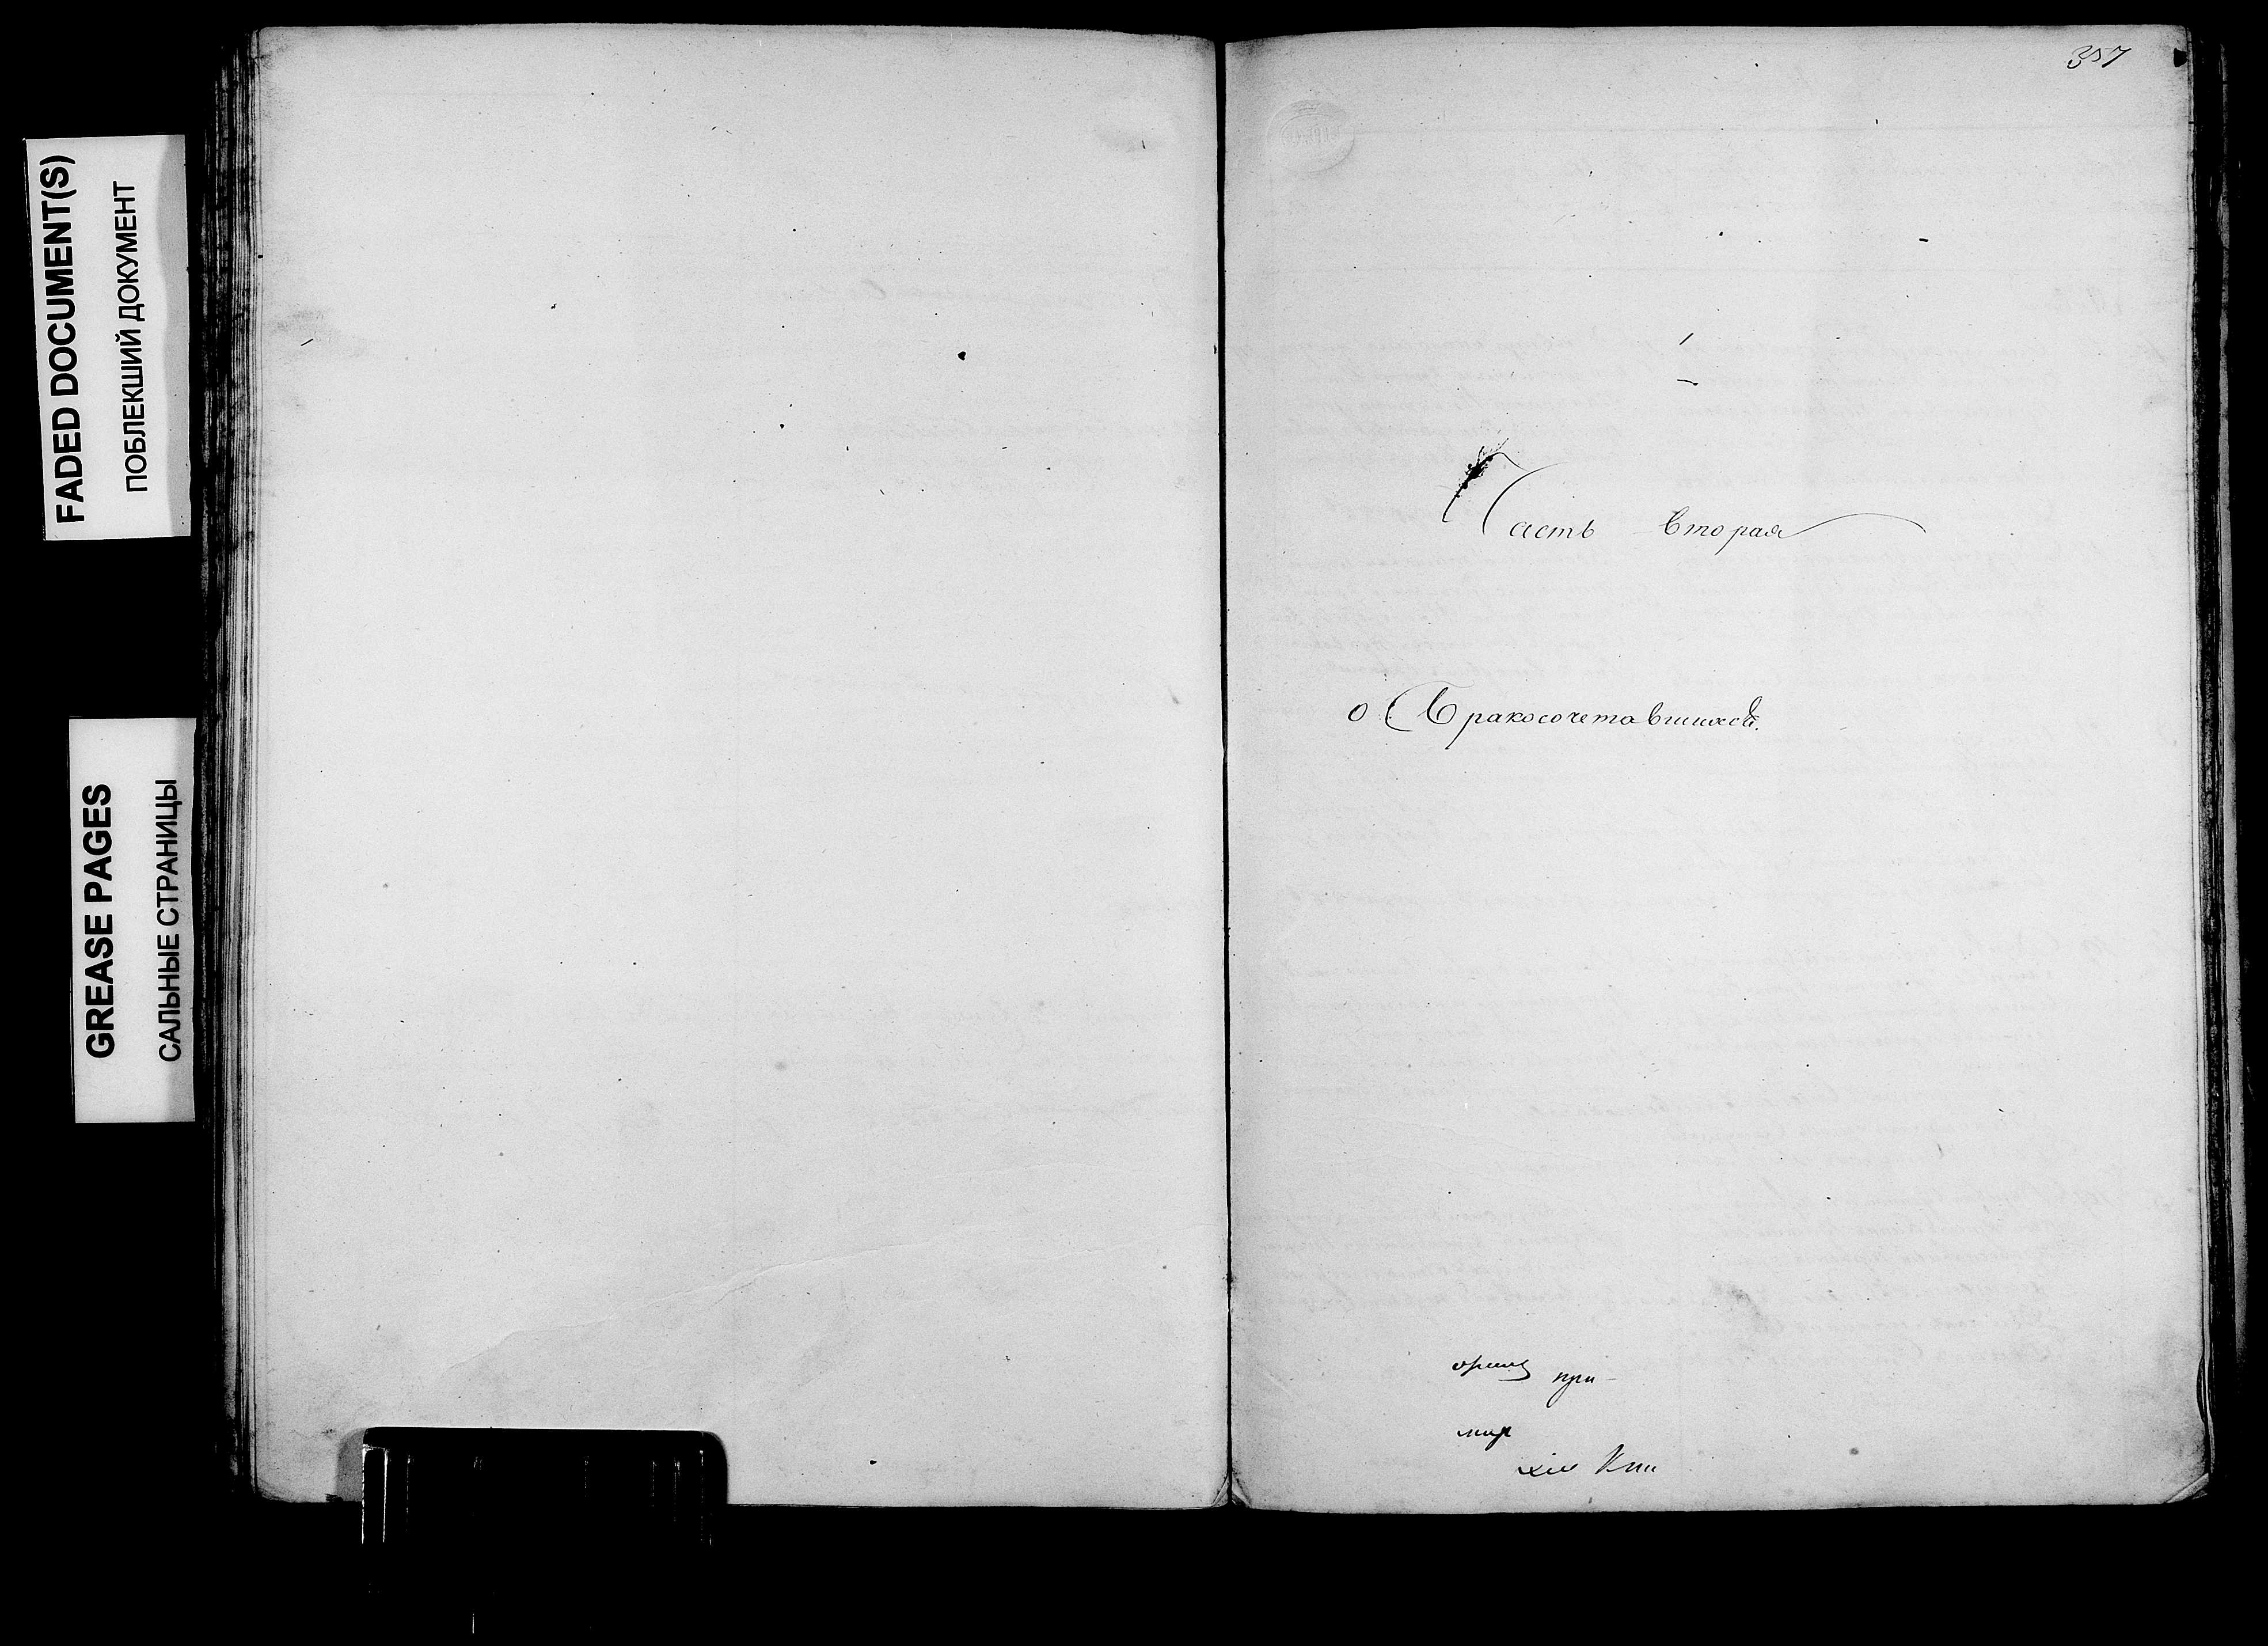 FADED DOCUMENT(S)
ПОБЛЕКШИЙ ДОКУМЕНТ
GREASE PAGES
САЛЬНЫЕ СТРАНИЦЫ
357
Часть вторая
о Бракосочетавшихся.
при
мир